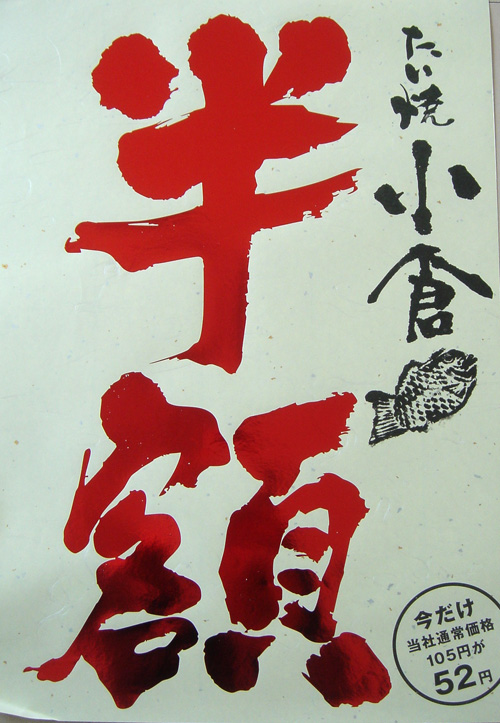 たい焼
小倉
半額
今だけ
当社通常価格
105円が
52円